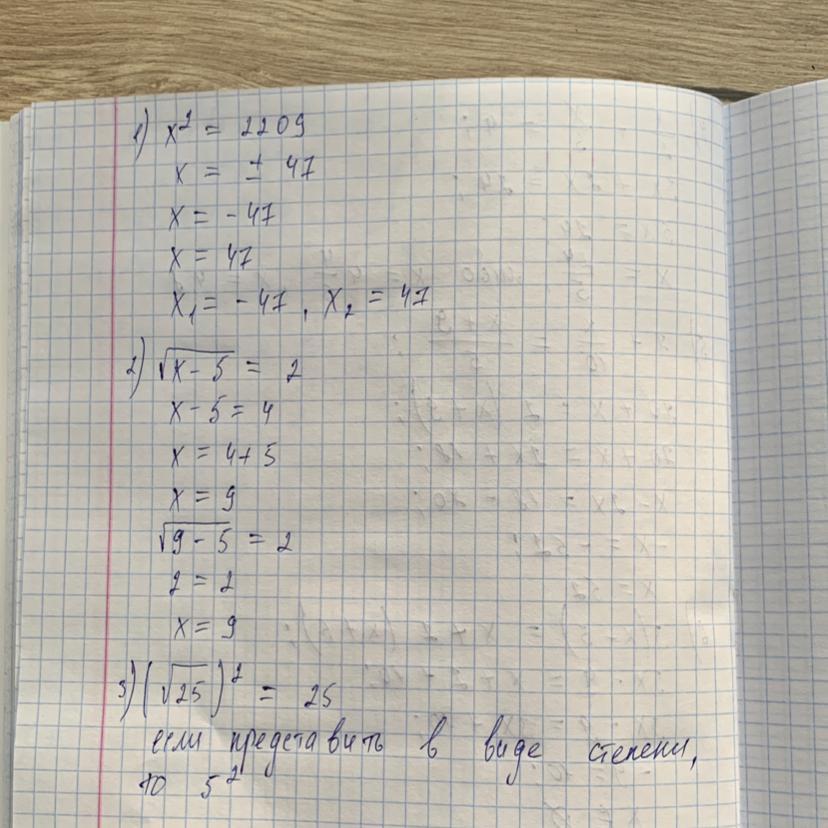 1) x² = 2209
x = ± 47
x = - 47
x = 47
x₁ = - 47, x₂ = 47
2) √(x - 5) = 2
x - 5 = 4
x = 4 + 5
x = 9
√(9 - 5) = 2
2 = 2
x = 9
3) (√25)² = 25
если представить в виде степени,
то 5²